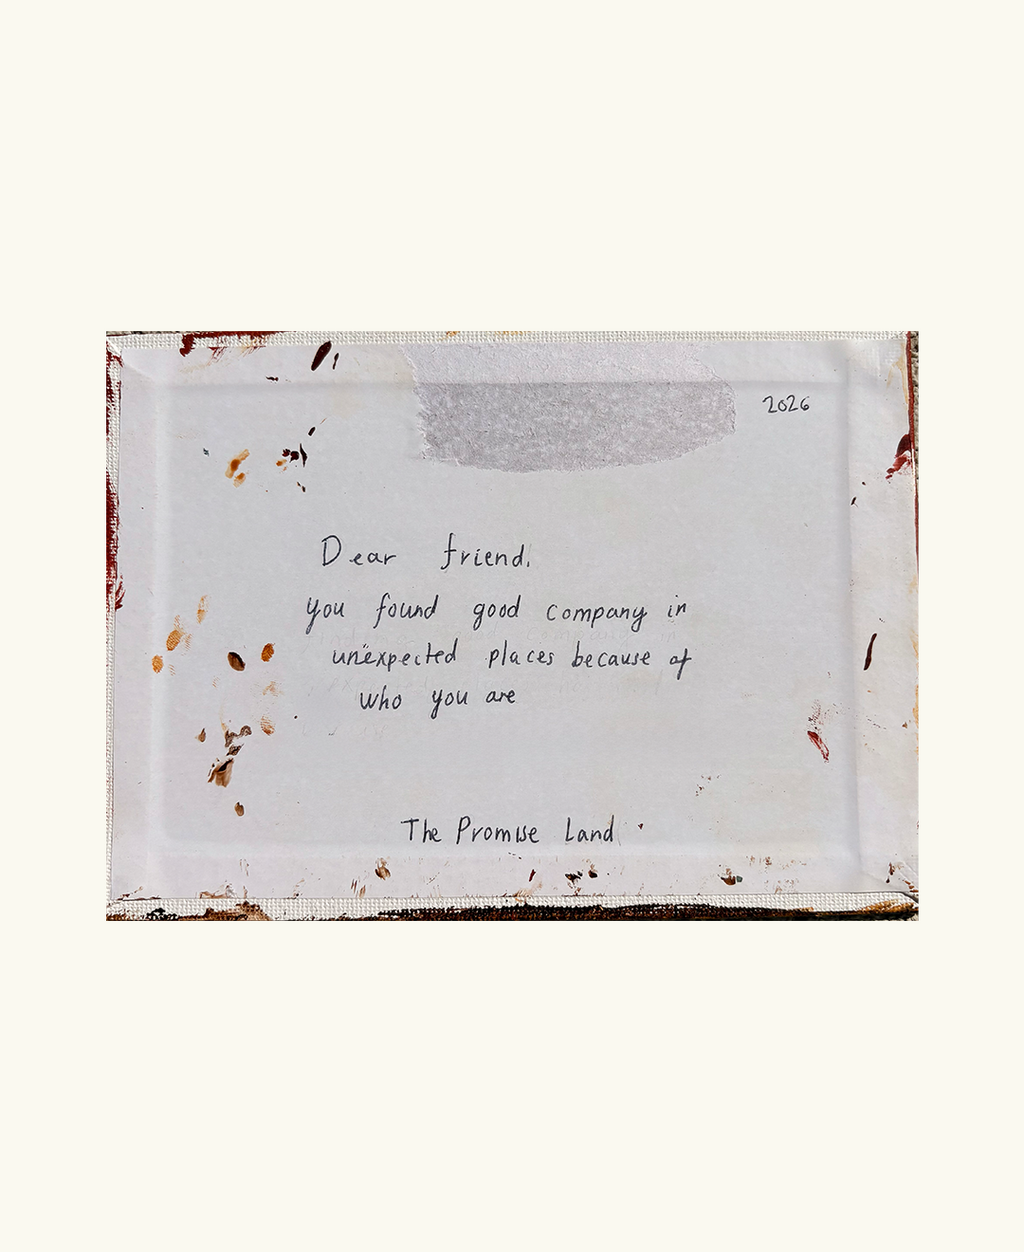 2026
Dear friend,
you found good company in
unexpected places because of
who you are
The Promise Land